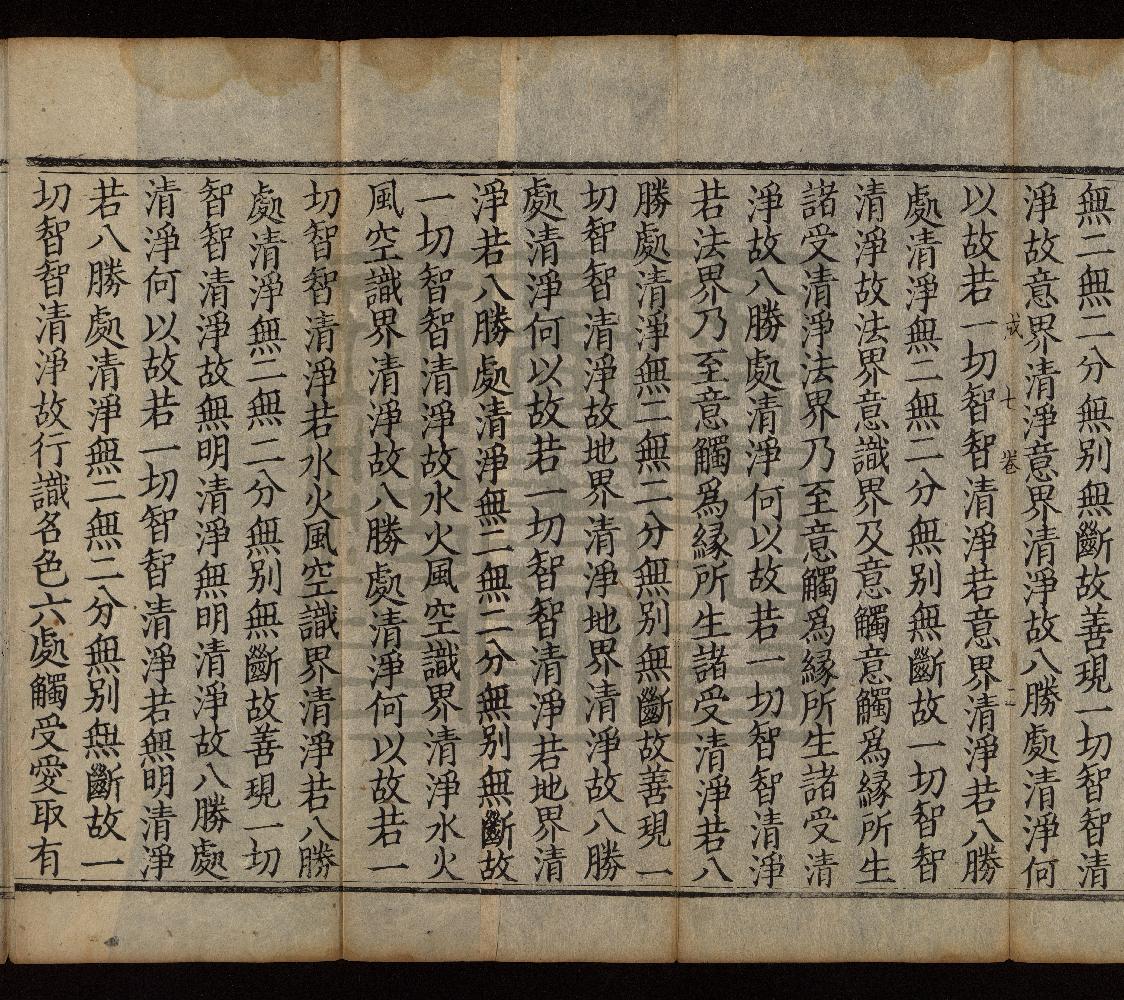 無二無二分無別無斷故善現一切智智清
淨故意界清淨意界清淨故八勝處清淨何
以故若一切智智清淨若意界清淨若八勝
處清淨無二無二分無別無斷故一切智智
清淨故法界意識界及意觸意觸爲緣所生
諸受清淨法界乃至意觸爲緣所生諸受清
淨故八勝處清淨何以故若一切智智清淨
若法界乃至意觸爲緣所生諸受清淨若八
勝處清淨無二無二分無別無斷故善現一
切智智清淨故地界清淨地界清淨故八勝
處清淨何以故若一切智智清淨若地界清
淨若八勝處清淨無二無二分無別無斷故
一切智智清淨故水火風空識界清淨水火
風空識界清淨故八勝處清淨何以故若一
切智智清淨若水火風空識界清淨若八勝
處清淨無二無二分無別無斷故善現一切
智智清淨故無明清淨無明清淨故八勝處
清淨何以故若一切智智清淨若無明清淨
若八勝處清淨無二無二分無別無斷故一
切智智清淨故行識名色六處觸受愛取有
七卷